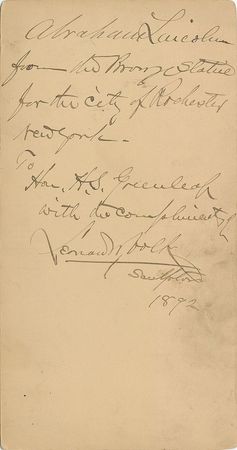 Abraham Lincoln
from the Bronz Statue
for the city of Rochester
New York -
To
Hon. H.S. Greenleaf
with the compliments of
Leonard W. Volk
Sculptor
1892